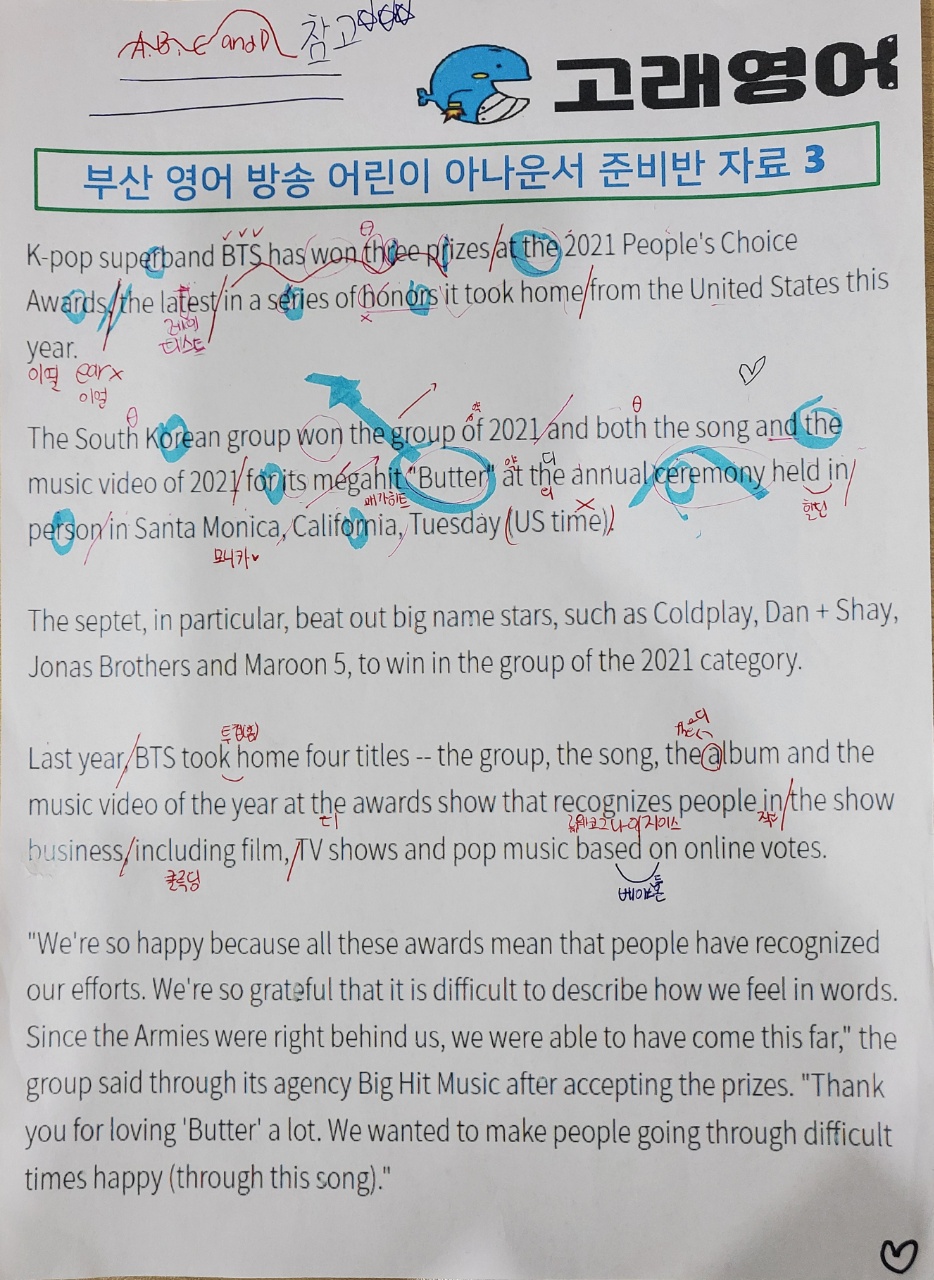 A.B.C and D 참고
고래영어
부산 영어 방송 어린이 아나운서 준비반 자료 3
θ
K-pop superband BTS has won three prizes/at the 2021 People's Choice
Awards,/the latest/in a series of honors it took home/from the United States this
티스트
year.
ear x
θ θ
The South Korean group won the group of 2021/and both the song and the
music video of 2021/for its megahit "Butter" at the annual ceremony held in/
메가히트
person/in Santa Monica, California, Tuesday (US time)/.
모니카
The septet, in particular, beat out big name stars, such as Coldplay, Dan + Shay,
Jonas Brothers and Maroon 5, to win in the group of the 2021 category.
the 디
Last year,/BTS took home four titles -- the group, the song, the album and the
music video of the year at the awards show that recognizes people in/the show
디
business,/including film,/TV shows and pop music based on online votes.
클루딩
"We're so happy because all these awards mean that people have recognized
our efforts. We're so grateful that it is difficult to describe how we feel in words.
Since the Armies were right behind us, we were able to have come this far," the
group said through its agency Big Hit Music after accepting the prizes. "Thank
you for loving 'Butter' a lot. We wanted to make people going through difficult
times happy (through this song)."